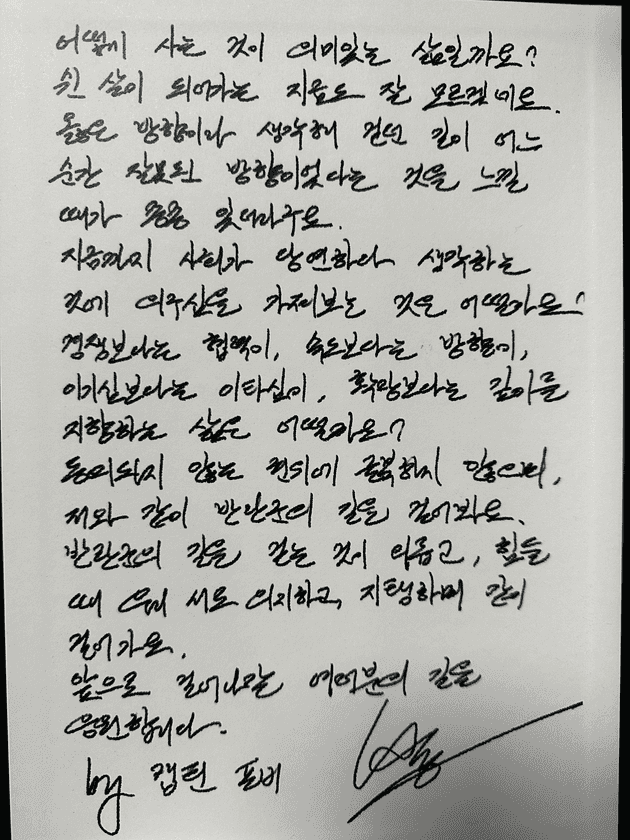 어떻게 사는 것이 의미있는 삶일까요?
쉰 살이 되어가는 지금도 잘 모르겠네요.
옳은 방향이라 생각해 걷던 길이 어느
순간 잘못된 방향이었다는 것을 느낄
때가 종종 있더라구요.
지금까지 사회가 당연하다 생각하는
것에 의구심을 가져보는 것은 어떨까요?
경쟁보다는 협력이, 속도보다는 방향이,
이기심보다는 이타심이, 확장보다는 깊이를
지향하는 삶은 어떨까요?
동의되지 않는 권위에 굴복하지 않으며,
저와 같이 반란군의 길을 걸어봐요.
반란군의 길을 걷는 것이 외롭고, 힘들
때 우리 서로 의지하고, 지탱하며 같이
걸어가요.
앞으로 걸어나갈 여러분의 길을
응원합니다.
by 캡틴 폰비